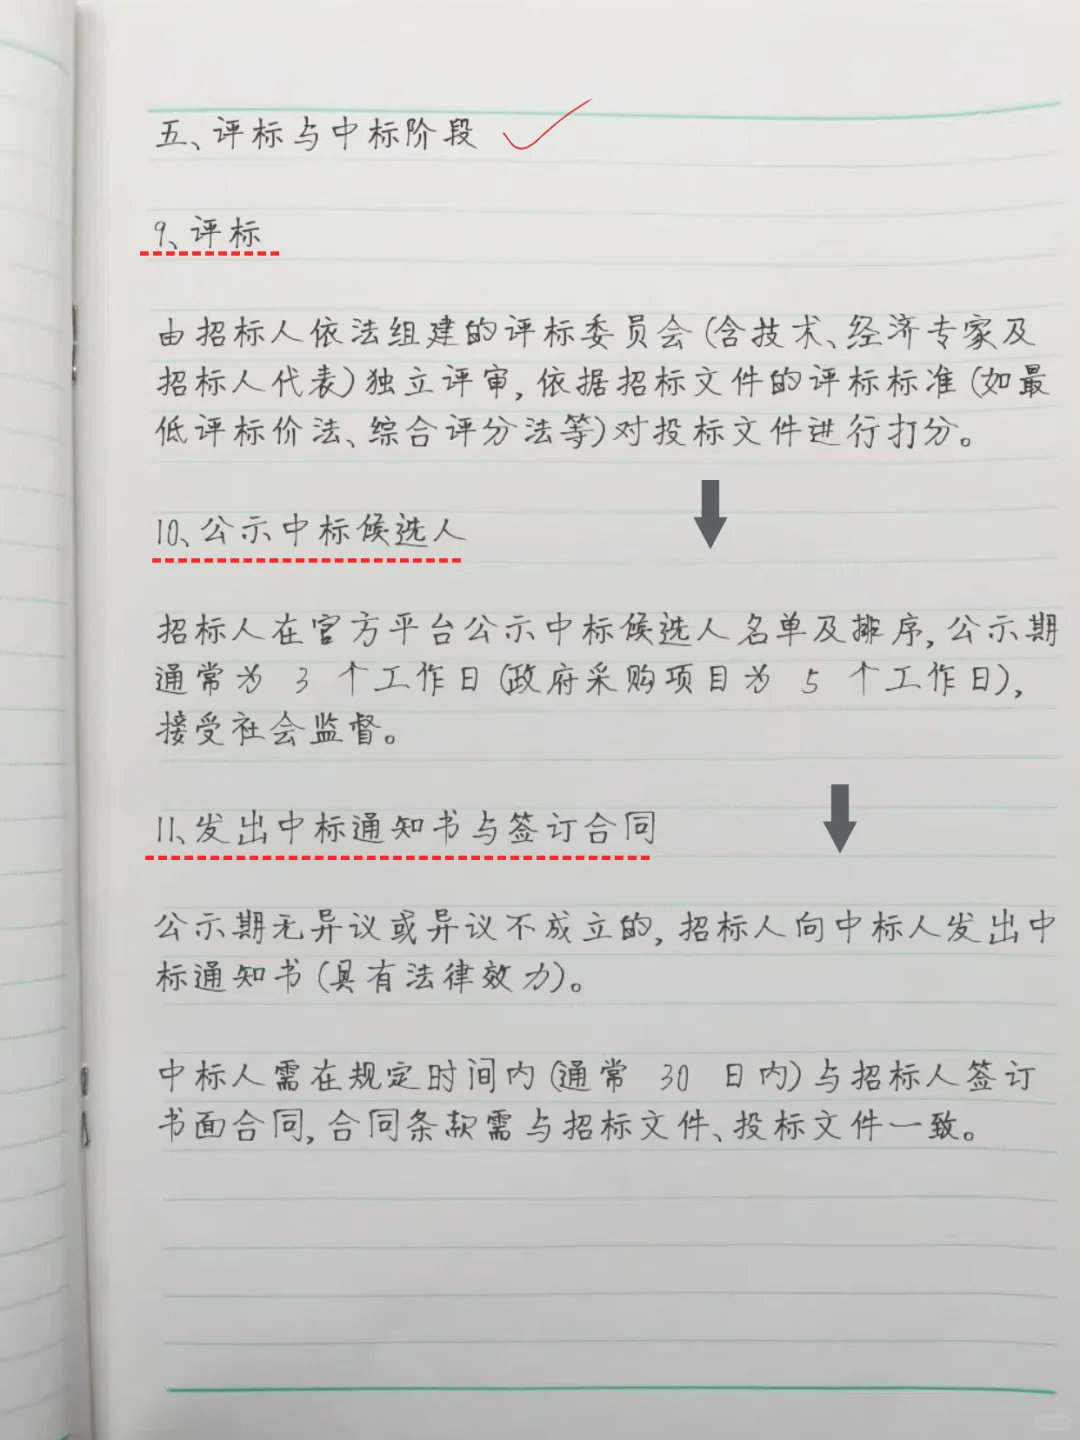 五、评标与中标阶段
9、评标
由招标人依法组建的评标委员会(含技术、经济专家及
招标人代表)独立评审,依据招标文件的评标标准(如最
低评标价法、综合评分法等)对投标文件进行打分。
10、公示中标候选人
招标人在官方平台公示中标候选人名单及排序,公示期
通常为 3 个工作日(政府采购项目为 5 个工作日),
接受社会监督。
11、发出中标通知书与签订合同
公示期无异议或异议不成立的,招标人向中标人发出中
标通知书(具有法律效力)。
中标人需在规定时间内(通常 30 日内)与招标人签订
书面合同,合同条款需与招标文件、投标文件一致。